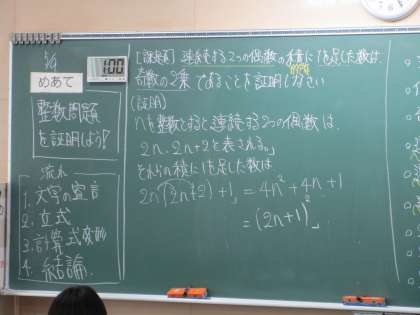 めあて
整数問題
を証明しよう!
流れ
1.文字の宣言
2.立式
3.計算式変形
4.結論.
100
[課題] 連続する2つの偶数の積に1を足した数は
奇数の2乗であることを証明しなさい
(証明)
nを整数とすると連続する2つの偶数は、
2n、2n+2と表される。
それらの積に1を足した数は
2n(2n+2)+1 = 4n²+4n+1
= (2n+1)²